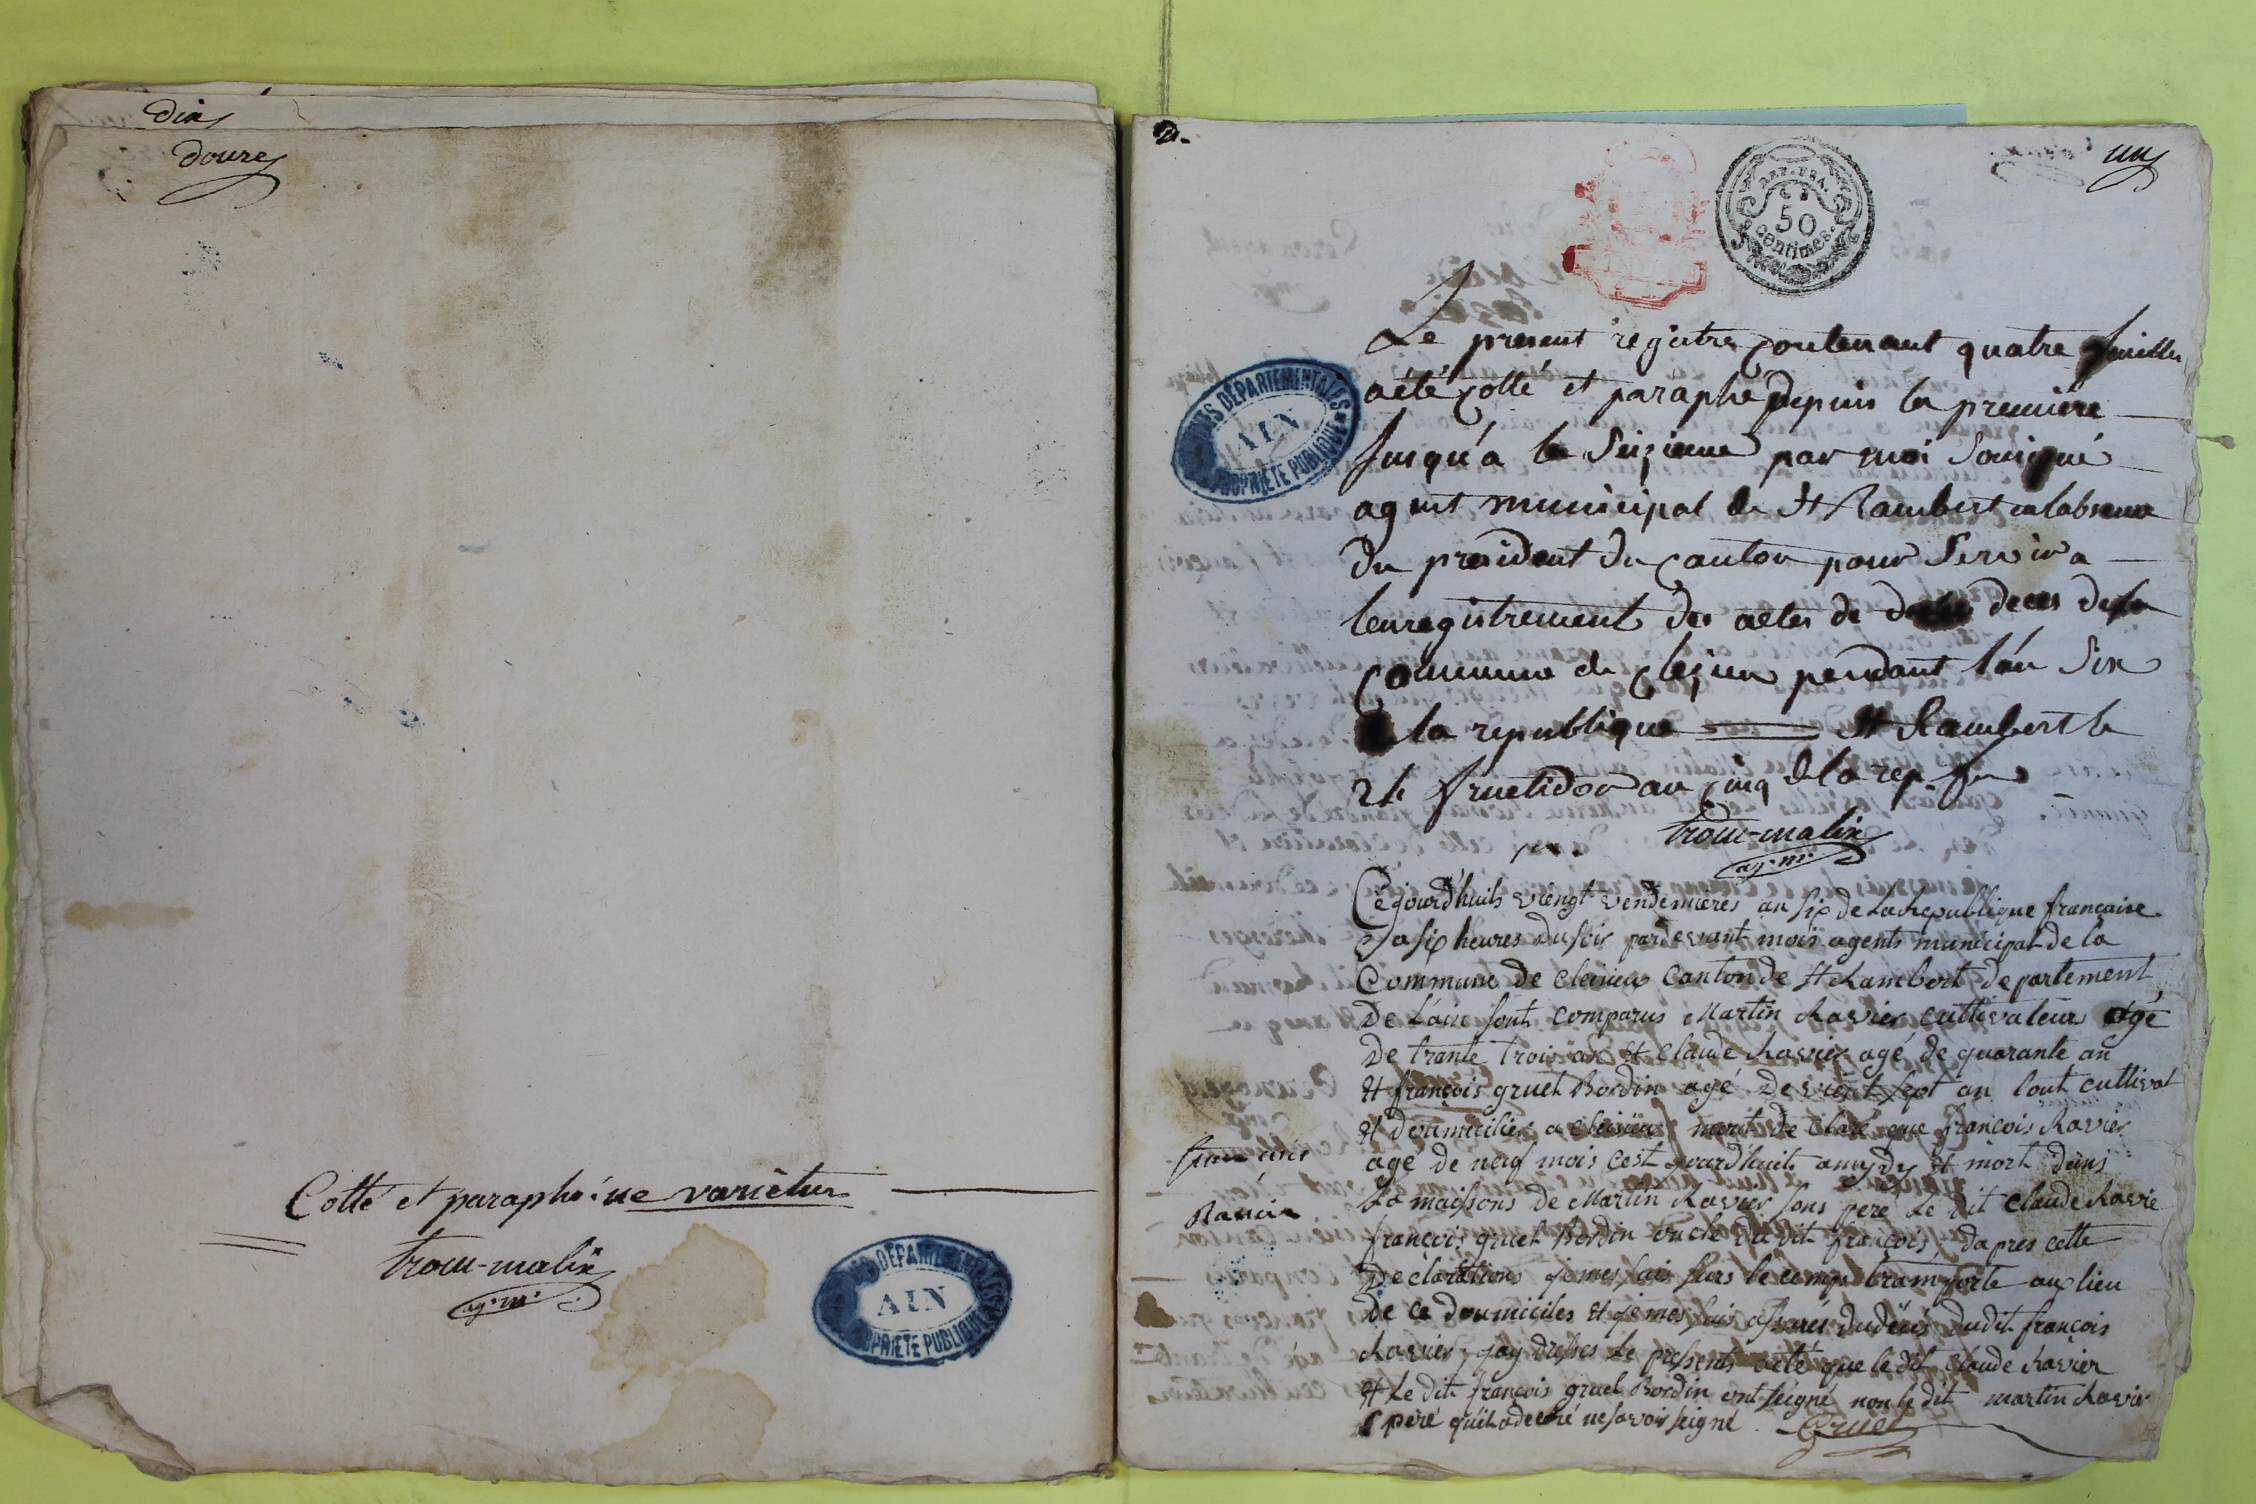 dix
douze
Cotté et paraphé ne varietur
trou-malin
ag. m.
ARCHIVES DÉPARTEMENTALES
AIN
PROPRIÉTÉ PUBLIQUE
2.
un
REP. FRA.
50
centimes.
ARCHIVES DÉPARTEMENTALES
AIN
PROPRIÉTÉ PUBLIQUE
Le present registre contenant quatre feuilles
a été cotté et paraphé depuis la premiere
Jusqu'a la Seizieme par moi Soussigné
agent municipal de St Rambert en labsence
du president du canton pour Servir a
lenregistrement des actes de deces de la
commune de cleizieu pendant l'an Six
la republique St Rambert le
fructidor an cinq de la rep. fse
trou-malin
ag. m.
Cejourd'huits viengt vendemières an six de La republique françaine
a six heures du soir pardevant mois agents municipal de la
Commune de cleisieu Canton de St Rambert departement
De L'ain sont comparus Martin Ravier cultivateur agé
De trante trois an et Claude Ravier agé de quarante an
et françois gruel Bordin agé de vient sept an tout cultivat
et doumicilies a cleisieu mont de claré que françois Ravier
agé de neuf mois cest jourdhuits a mydy et mort dans
françois
Ravier
La maissons de Martin Ravier sons pere Le dit Claude Ravie
françois gruel Bordin oncle du dit françois, dapres cette
Declarations je mes suis surs le cemps transporte aux lieu
de ce doumiciles et je mes suis assurés du décés dudit françois
Ravier, jay dresses Le pressents acté que le dit Claude Ravier
et Le dit françois gruel Bordin ont seigné non le dit martin Ravier
pere quil a decleré ne savoir seigné. Gruel